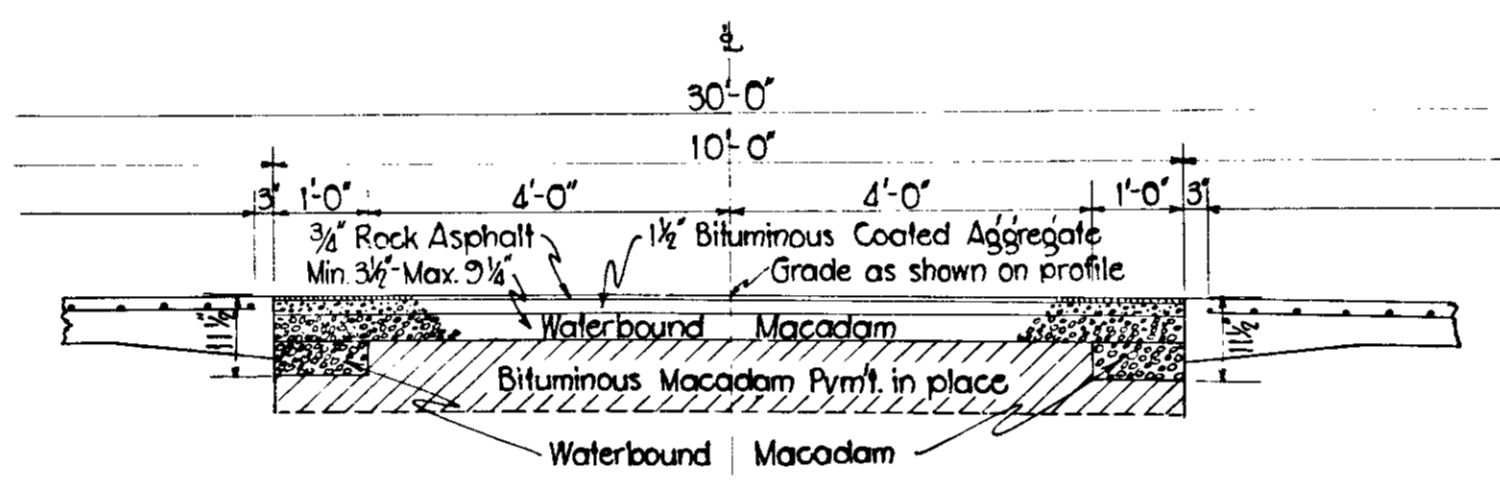 ℄
30'-0"
10'-0"
3" 1'-0" 4'-0" 4'-0" 1'-0" 3"
3/4" Rock Asphalt 1 1/2" Bituminous Coated Aggregate
Min. 3 1/2"-Max. 9 1/4" Grade as shown on profile
Waterbound Macadam
11 1/2" 11 1/2"
Bituminous Macadam Pvm't. in place
Waterbound Macadam